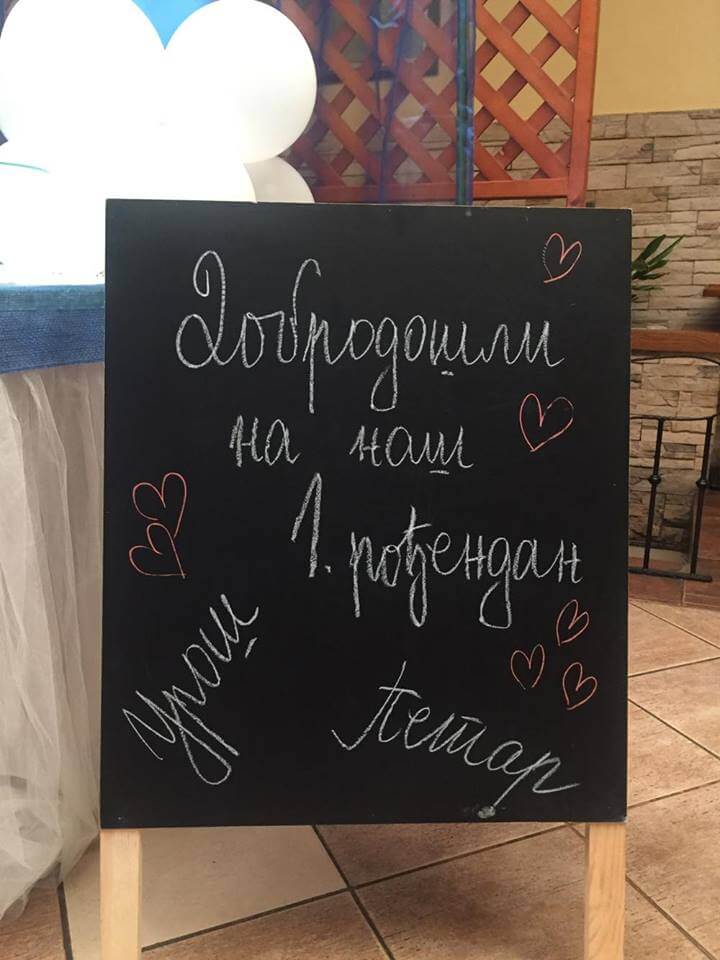 Добродошли
на наш
1. рођендан
Урош
Петар